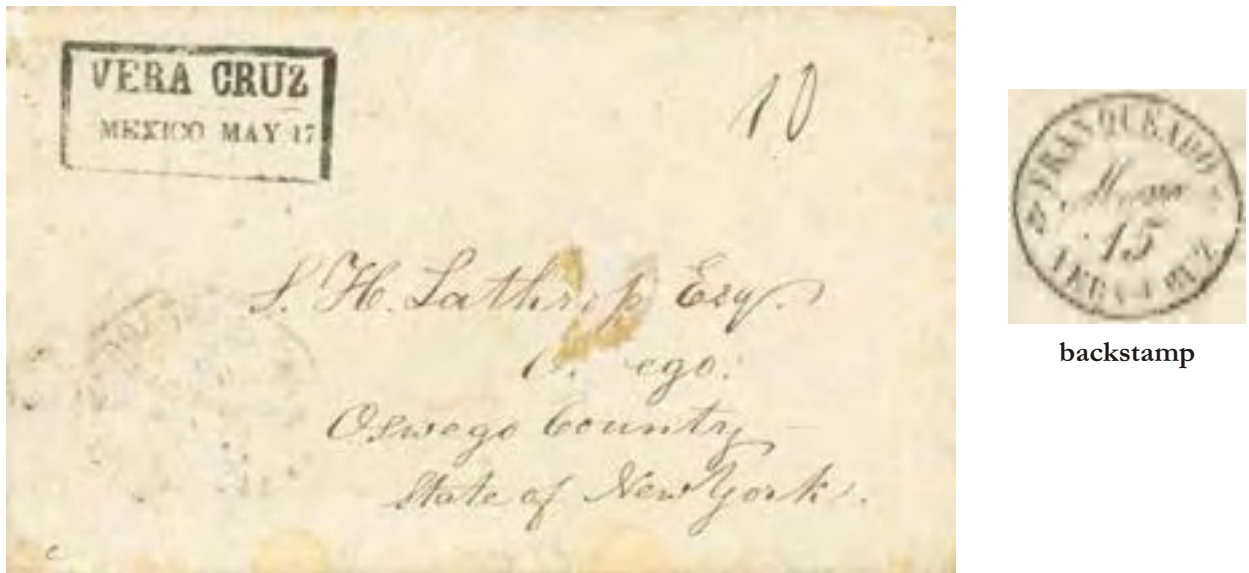 VERA CRUZ
MEXICO MAY 17
10
S. H. Lathrop Esq.
O. ego:
Oswego Country
State of New York.
FRANQUEADO
15
VERA-CRUZ
backstamp